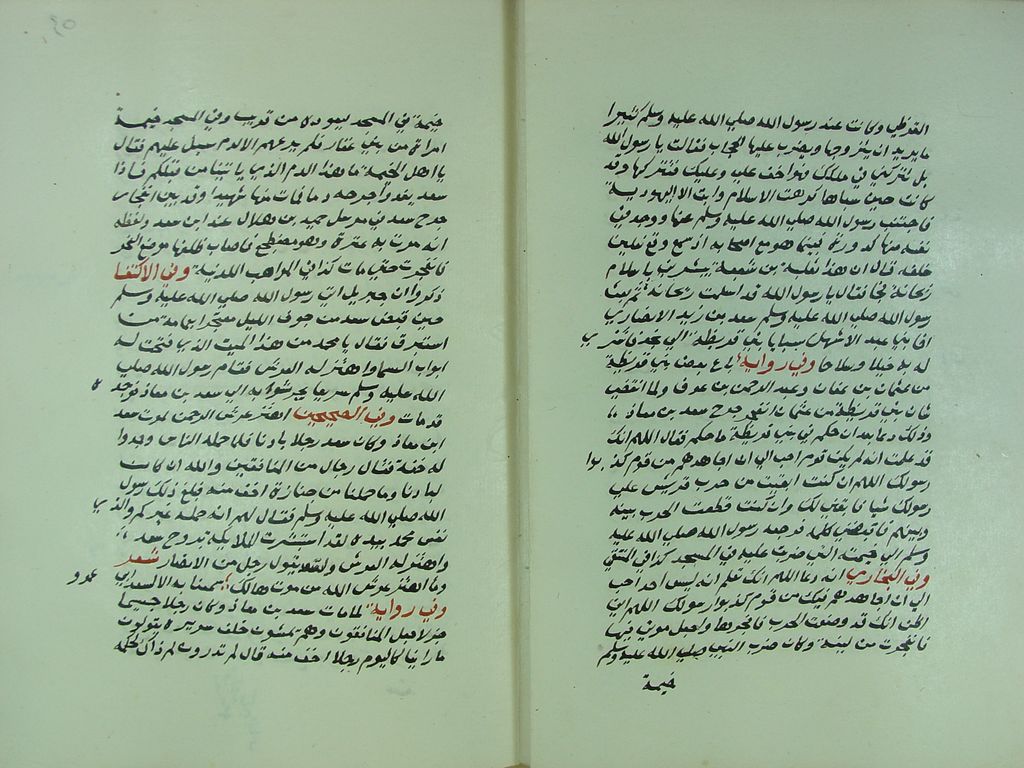 القرظي وكانت عند رسول الله صلي الله عليه وسلم كثيرا
ما يريد ان يتزوجها ويضرب عليها الحجاب فقالت يا رسول الله
بل تتركني في ملكك فهو اخف علي وعليك فتركها وقد
كانت حين سباها كرهت الاسلام وابت الا اليهودية
فاجتنب رسول الله صلي الله عليه وسلم عنها ووجد في
نفسه منها كدورة بينما هو مع اصحابه اذ سمع وقع نعلين
خلفه قال ان هذا ثعلبة بن شعبة يبشرني باسلام
ريحانة فجا فقال يا رسول الله قد اسلمت ريحانة ثم بعث
رسول الله صلي الله عليه وسلم سعد بن زيد الانصاري
اخا بني عبد الاشهل سبايا بني قريظة الي نجد فاشتري
له به خيلا وسلاحا وفي رواية باع بعض بني قريظة
من عثمان بن عفان وعبد الرحمن بن عوف ولما انقضي
شان بني قريظة من عثمان انفجر جرح سعد بن معاذ
وذلك دعا بعد ان حكم في بني قريظة ما حكم فقال اللهم انك
قد علمت انه لم يكن قوم احب الي ان اجاهدهم من قوم كذبوا
رسولك اللهم ان كنت ابقيت من حرب قريش علي
رسولك شيا فابقني لك وان كنت قطعت الحرب بينه
وبينهم فاقبضني اليك فرجعه رسول الله صلي الله عليه
وسلم الي خيمته التي ضربت عليه في المسجد كذا في المنتقي
وفي البخاري انه دعا اللهم انك تعلم انه ليس احد احب
الي ان اجاهدهم فيك من قوم كذبوا رسولك اللهم اني
اظن انك قد وضعت الحرب فافجرها واجعل موتي فيها
فانفجرت من لبته وكان ضرب النبي صلي الله عليه وسلم
خيمة
خيمة في المسجد ليعوده من قريب وفي المسجد خيمة
امراة من بني غفار فلم يرعهم الا الدم يسيل عليهم فقال
يا اهل الخيمة ما هذا الدم الذي ياتينا من قبلكم فاذا
سعد يغدوا جرحه دما فمات منها شهيدا وقد بين انفجار
جرح سعد في مرسل حميد بن هلال عند ابن سعد ولفظه
انه مرت به عنزة وهو مضطجع فاصاب ظلفها موضع النحر
فانفجرت حتي مات كذا في المواهب اللدنية وفي الاكتفا
ذكروا ان جبريل اتي رسول الله صلي الله عليه وسلم
حين قبض سعد من جوف الليل معتجرا بعمامة من
استبرق فقال يا محمد من هذا الميت الذي فتحت له
ابواب السما واهتز له العرش فقام رسول الله صلي
الله عليه وسلم سريعا يجر ثوبه الي سعد بن معاذ فوجده
قد مات وفي الصحيحين اهتز عرش الرحمن لموت سعد
ابن معاذ وكان سعد رجلا بادنا فلما حمله الناس وجدوا
له خفة فقال رجال من المنافقين والله ان كان
لبادنا وما حملنا من جنازة اخف منه فبلغ ذلك رسول
الله صلي الله عليه وسلم فقال لهم انه حمله غيركم والذي
نفس محمد بيده لقد استبشرت الملايكة بروح سعد
واهتز له العرش وله يقول رجل من الانصار شعر
وما اهتز عرش الله من موت هالك سمعنا به الا لسعد ابي عمرو
وفي رواية لما مات سعد بن معاذ وكان رجلا جسيما
جزلا فجعل المنافقون وهم يمشون خلف سريره يقولون
ما راينا كاليوم رجلا اخف منه قال لم تدرون لم ذاك لحكمه